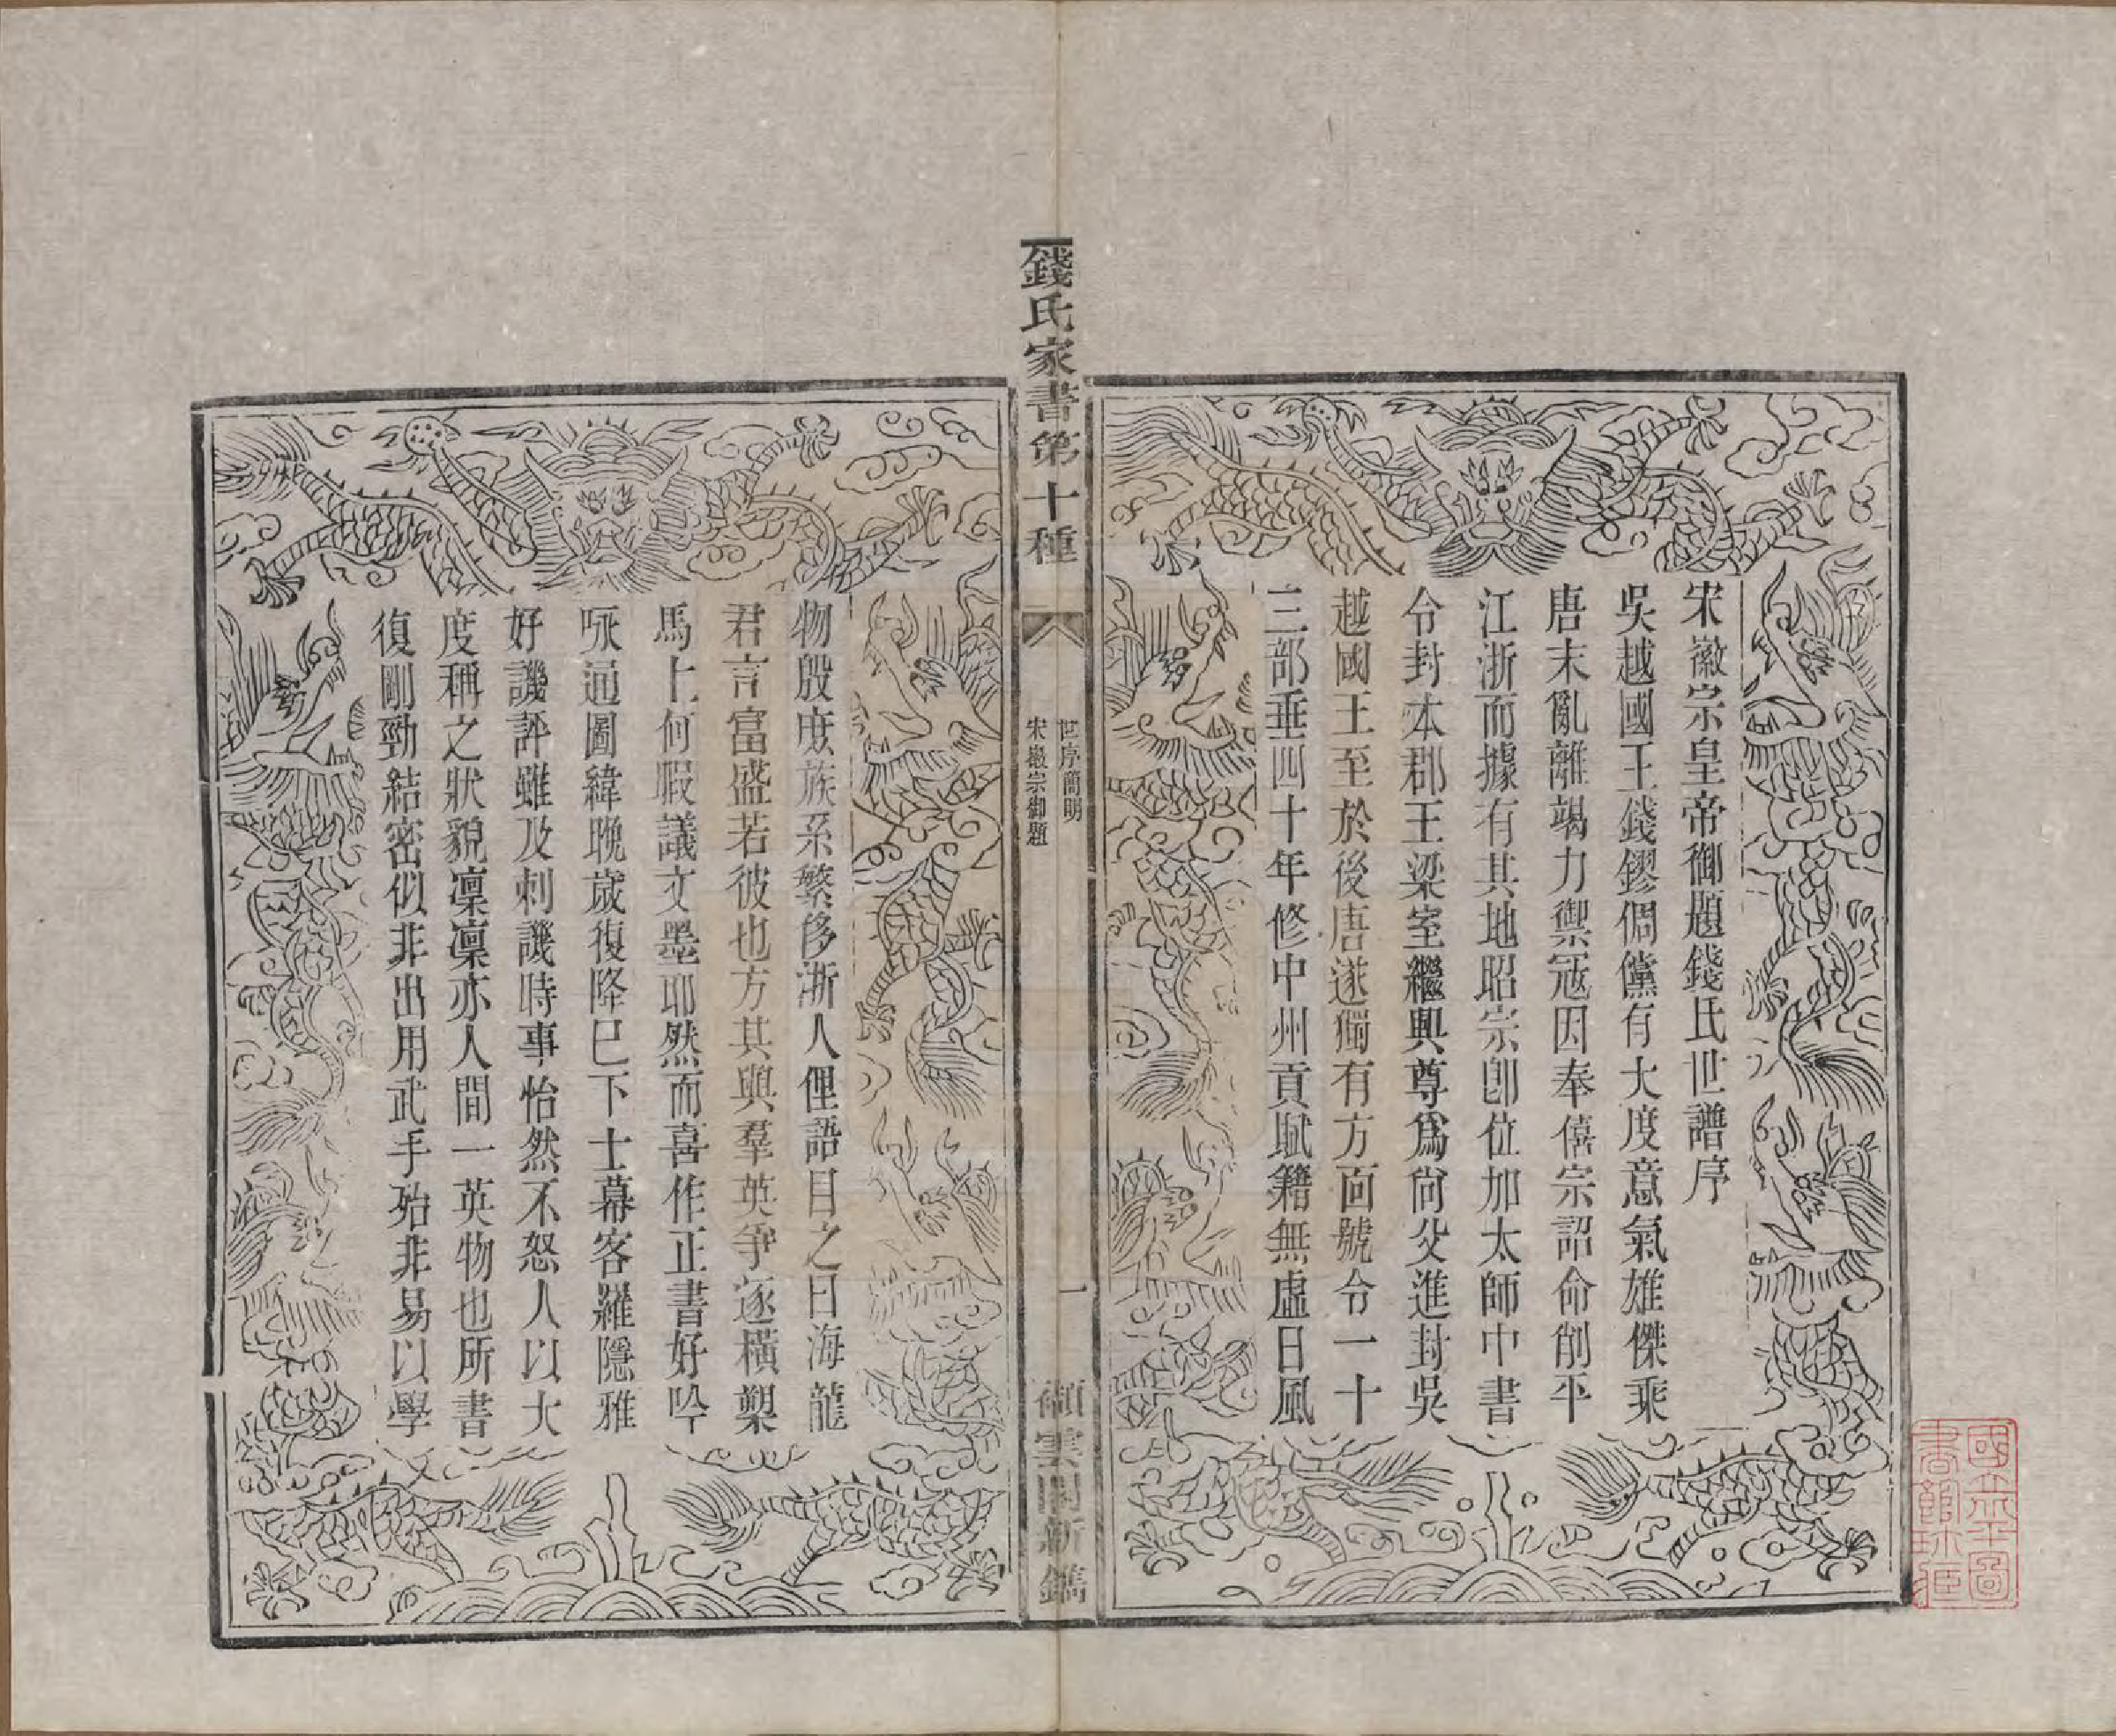 宋徽宗皇帝御題錢氏世譜序
吳越國王錢鏐倜儻有大度意氣雄傑乘
唐末亂離竭力禦冦因奉僖宗詔命削平
江浙而據有其地昭宗卽位加太師中書
令封本郡王梁室繼興尊爲尙父進封吳
越國王至於後唐遂獨有方面號令一十
三部垂四十年修中州貢賦籍無虛日風
錢氏家書第十種
世序簡明
宋徽宗御題
一
雲閣新鐫
物殷庶族系繁侈浙人俚語目之曰海龍
君言富盛若彼也方其與羣英爭逐橫槊
馬上何暇議文墨耶然而喜作正書好吟
咏通圖緯晚歲復降巳下士幕客羅隱雅
好譏評雖及刺譏時事怡然不怒人以大
度稱之狀貌凜凜亦人間一英物也所書
復剛勁結密似非出用武手殆非易以學
國立北平圖
書館珍藏